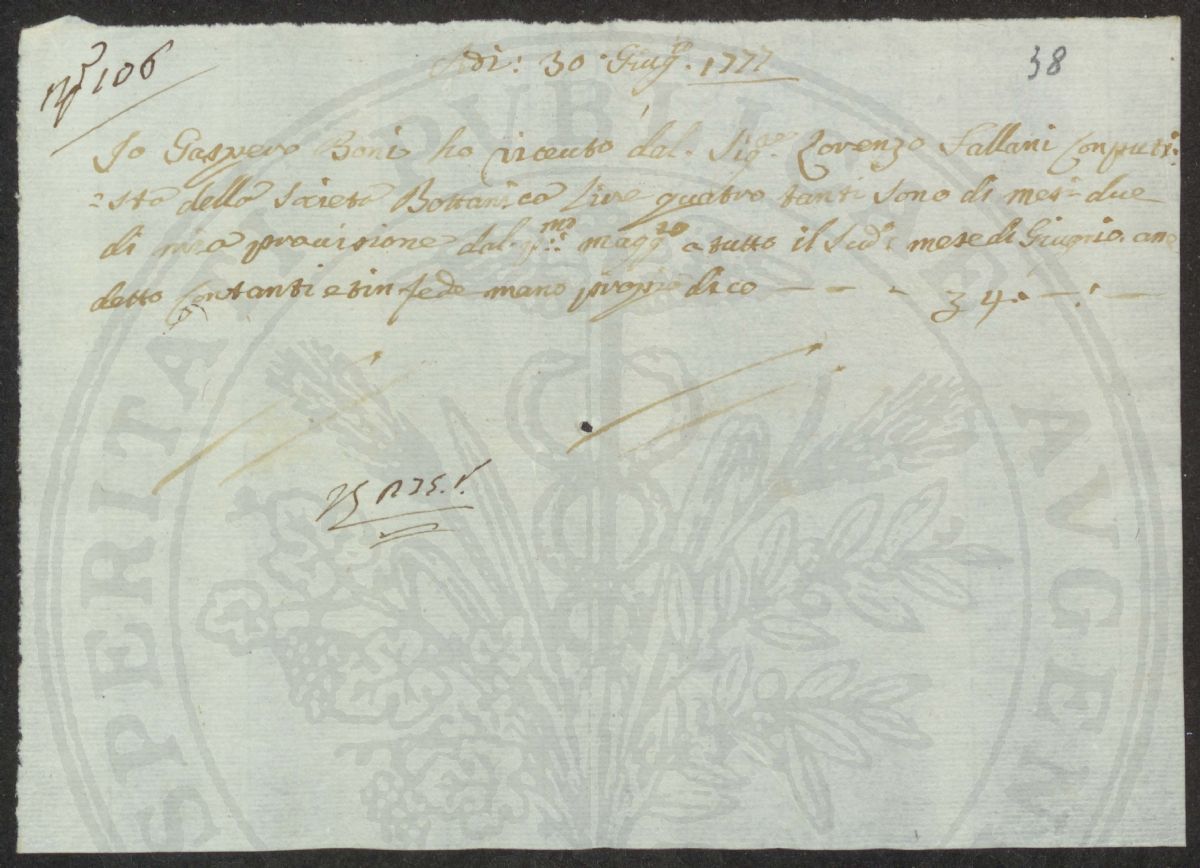 N.º 106
Adi: 30. Giug.º 1777
38
Io Gaspero Boni ho riceuto dal. Sig.re Lorenzo Fallani Conputi:
:sta della Società Bottanica Lire quatro tanti sono di mesi due
di mia prouisione dal p.mo magg.io a tutto il Sud.º mese di Giugnio. a me
detto Contanti e in fede mano propio dico — — - 34.—.—
PVBLICAE
AVGEN
SPERITATI